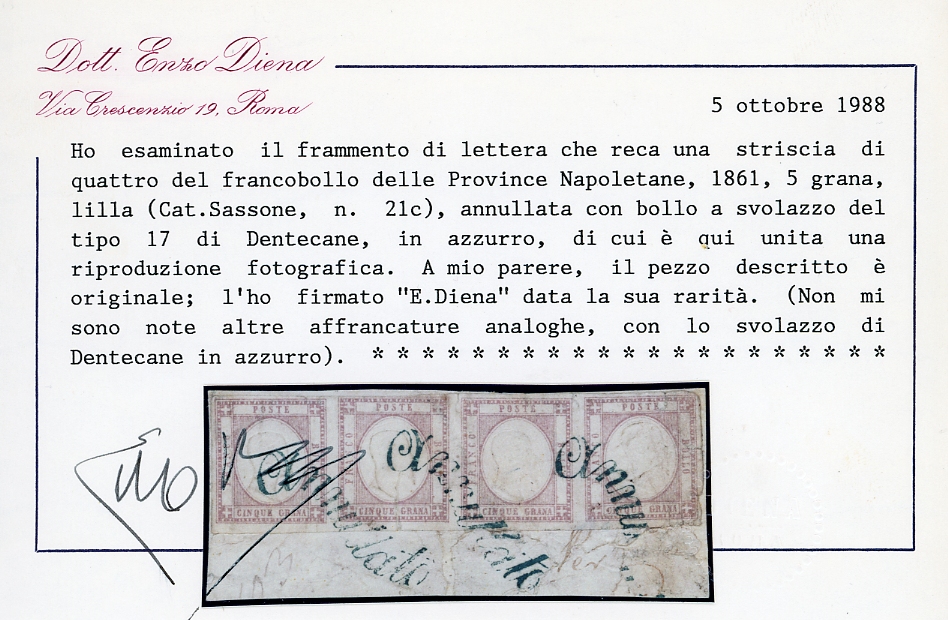 Dott. Enzo Diena
Via Crescenzio 19, Roma
5 ottobre 1988
Ho esaminato il frammento di lettera che reca una striscia di
quattro del francobollo delle Province Napoletane, 1861, 5 grana,
lilla (Cat.Sassone, n. 21c), annullata con bollo a svolazzo del
tipo 17 di Dentecane, in azzurro, di cui è qui unita una
riproduzione fotografica. A mio parere, il pezzo descritto è
originale; l'ho firmato "E.Diena" data la sua rarità. (Non mi
sono note altre affrancature analoghe, con lo svolazzo di
Dentecane in azzurro). * * * * * * * * * * * * * * * * * * * * *
POSTE POSTE POSTE POSTE
FRANCO BOLLO FRANCO BOLLO
Annullato Annullato Annu
CINQUE GRANA CINQUE GRANA CINQUE GRANA CINQUE GRANA